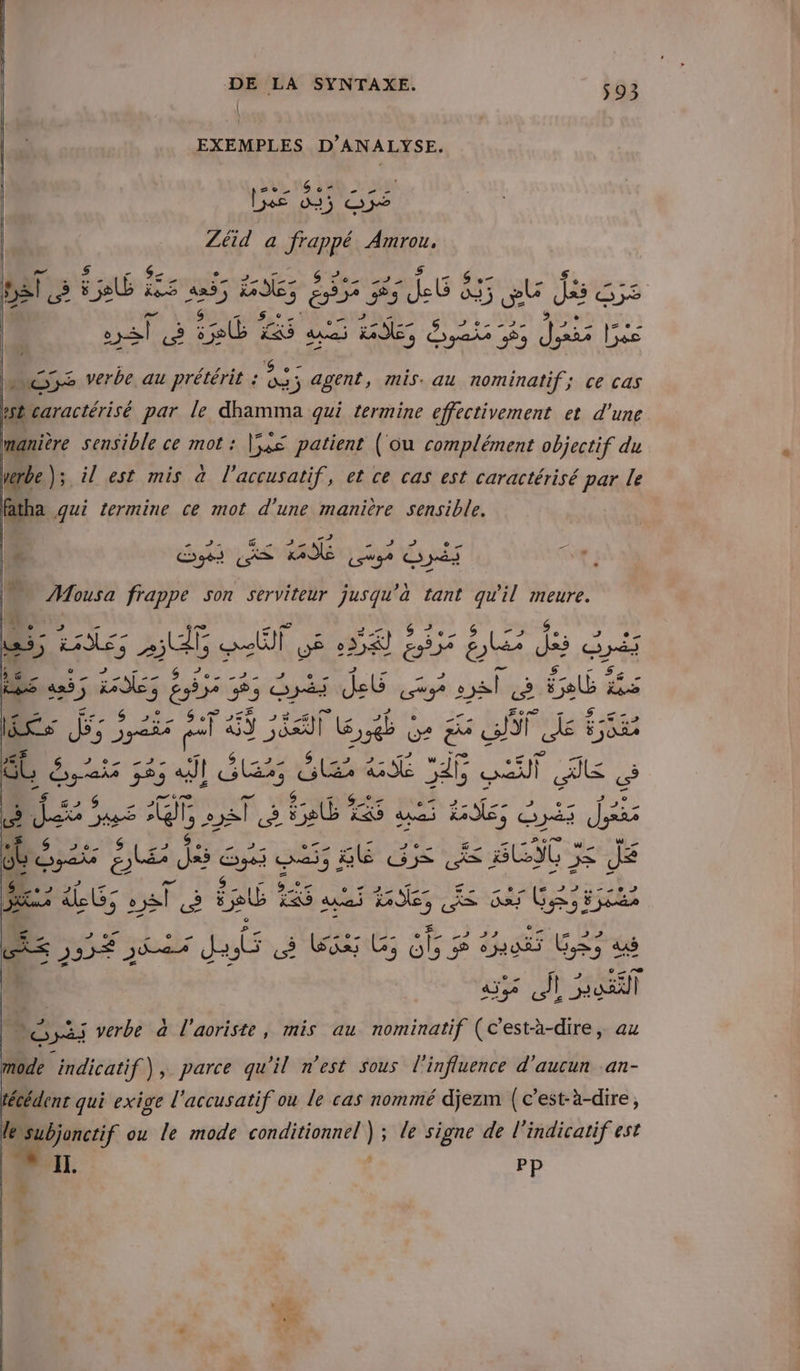 DE LA SYNTAXE. 593
EXEMPLES D'ANALYSE.
ضَرَبَ زَيْدٌ عَمْرًا
Zéid a frappé Amrou.
ضَرَبَ فِعْلٌ مَاضٍ زَيْدٌ فَاعِلٌ وَهُوَ مَرْفُوعٌ وَعَلَامَةُ رَفْعِهِ ضَمَّةٌ ظَاهِرَةٌ فِى آخِرِهِ
عَمْرًا مَفْعُولٌ وَهُوَ مَنْصُوبٌ وَعَلَامَةُ نَصْبِهِ فَتْحَةٌ ظَاهِرَةٌ فِى آخِرِهِ
ضَرَبَ verbe au prétérit : زَيْدٌ agent, mis au nominatif; ce cas
est caractérisé par le dhamma qui termine effectivement et d'une
manière sensible ce mot : عَمْرًا patient (ou complément objectif du
verbe); il est mis à l'accusatif, et ce cas est caractérisé par le
fatha qui termine ce mot d'une manière sensible.
يَضْرِبُ مُوسَى غُلَامَهُ حَتَّى يَمُوتَ
Mousa frappe son serviteur jusqu'à tant qu'il meure.
يَضْرِبُ فِعْلٌ مُضَارِعٌ مَرْفُوعٌ لِتَجَرُّدِهِ عَنِ ٱلنَّاصِبِ وَٱلْجَازِمِ وَعَلَامَةُ رَفْعِهِ
ضَمَّةٌ ظَاهِرَةٌ فِى آخِرِهِ مُوسَى فَاعِلُ يَضْرِبُ وَهُوَ مَرْفُوعٌ وَعَلَامَةُ رَفْعِهِ ضَمَّةٌ
مُقَدَّرَةٌ عَلَى ٱلْأَلِفِ مَنَعَ مِنْ ظُهُورِهَا ٱلتَّعَذُّرُ لِأَنَّهُ ٱسْمٌ مَقْصُورٌ وَقُلْ هٰكَذَا
فِى حَالَتَىِ ٱلنَّصْبِ وَٱلْجَرِّ غُلَامَهُ مُضَافٌ وَمُضَافٌ إِلَيْهِ وَهُوَ مَنْصُوبٌ بِأَنَّهُ
مَفْعُولُ يَضْرِبُ وَعَلَامَةُ نَصْبِهِ فَتْحَةٌ ظَاهِرَةٌ فِى آخِرِهِ وَٱلْهَاءُ ضَمِيرٌ مُتَّصِلٌ فِى
مَحَلِّ جَرٍّ بِٱلْإِضَافَةِ حَتَّى حَرْفُ غَايَةٍ وَنَصْبٍ يَمُوتَ فِعْلٌ مُضَارِعٌ مَنْصُوبٌ بِأَنْ
مُضْمَرَةً وُجُوبًا بَعْدَ حَتَّى وَعَلَامَةُ نَصْبِهِ فَتْحَةٌ ظَاهِرَةٌ فِى آخِرِهِ وَفَاعِلُهُ مُسْتَتِرٌ
فِيهِ وُجُوبًا تَقْدِيرُهُ هُوَ وَأَنْ وَمَا بَعْدَهَا فِى تَأْوِيلِ مَصْدَرٍ مَجْرُورٍ بِحَتَّى
ٱلتَّقْدِيرُ إِلَى مَوْتِهِ
يَضْرِبُ verbe à l'aoriste, mis au nominatif (c'est-à-dire, au
mode indicatif), parce qu'il n'est sous l'influence d'aucun an-
técédent qui exige l'accusatif ou le cas nommé djezm (c'est-à-dire,
le subjonctif ou le mode conditionnel); le signe de l'indicatif est
II. PP